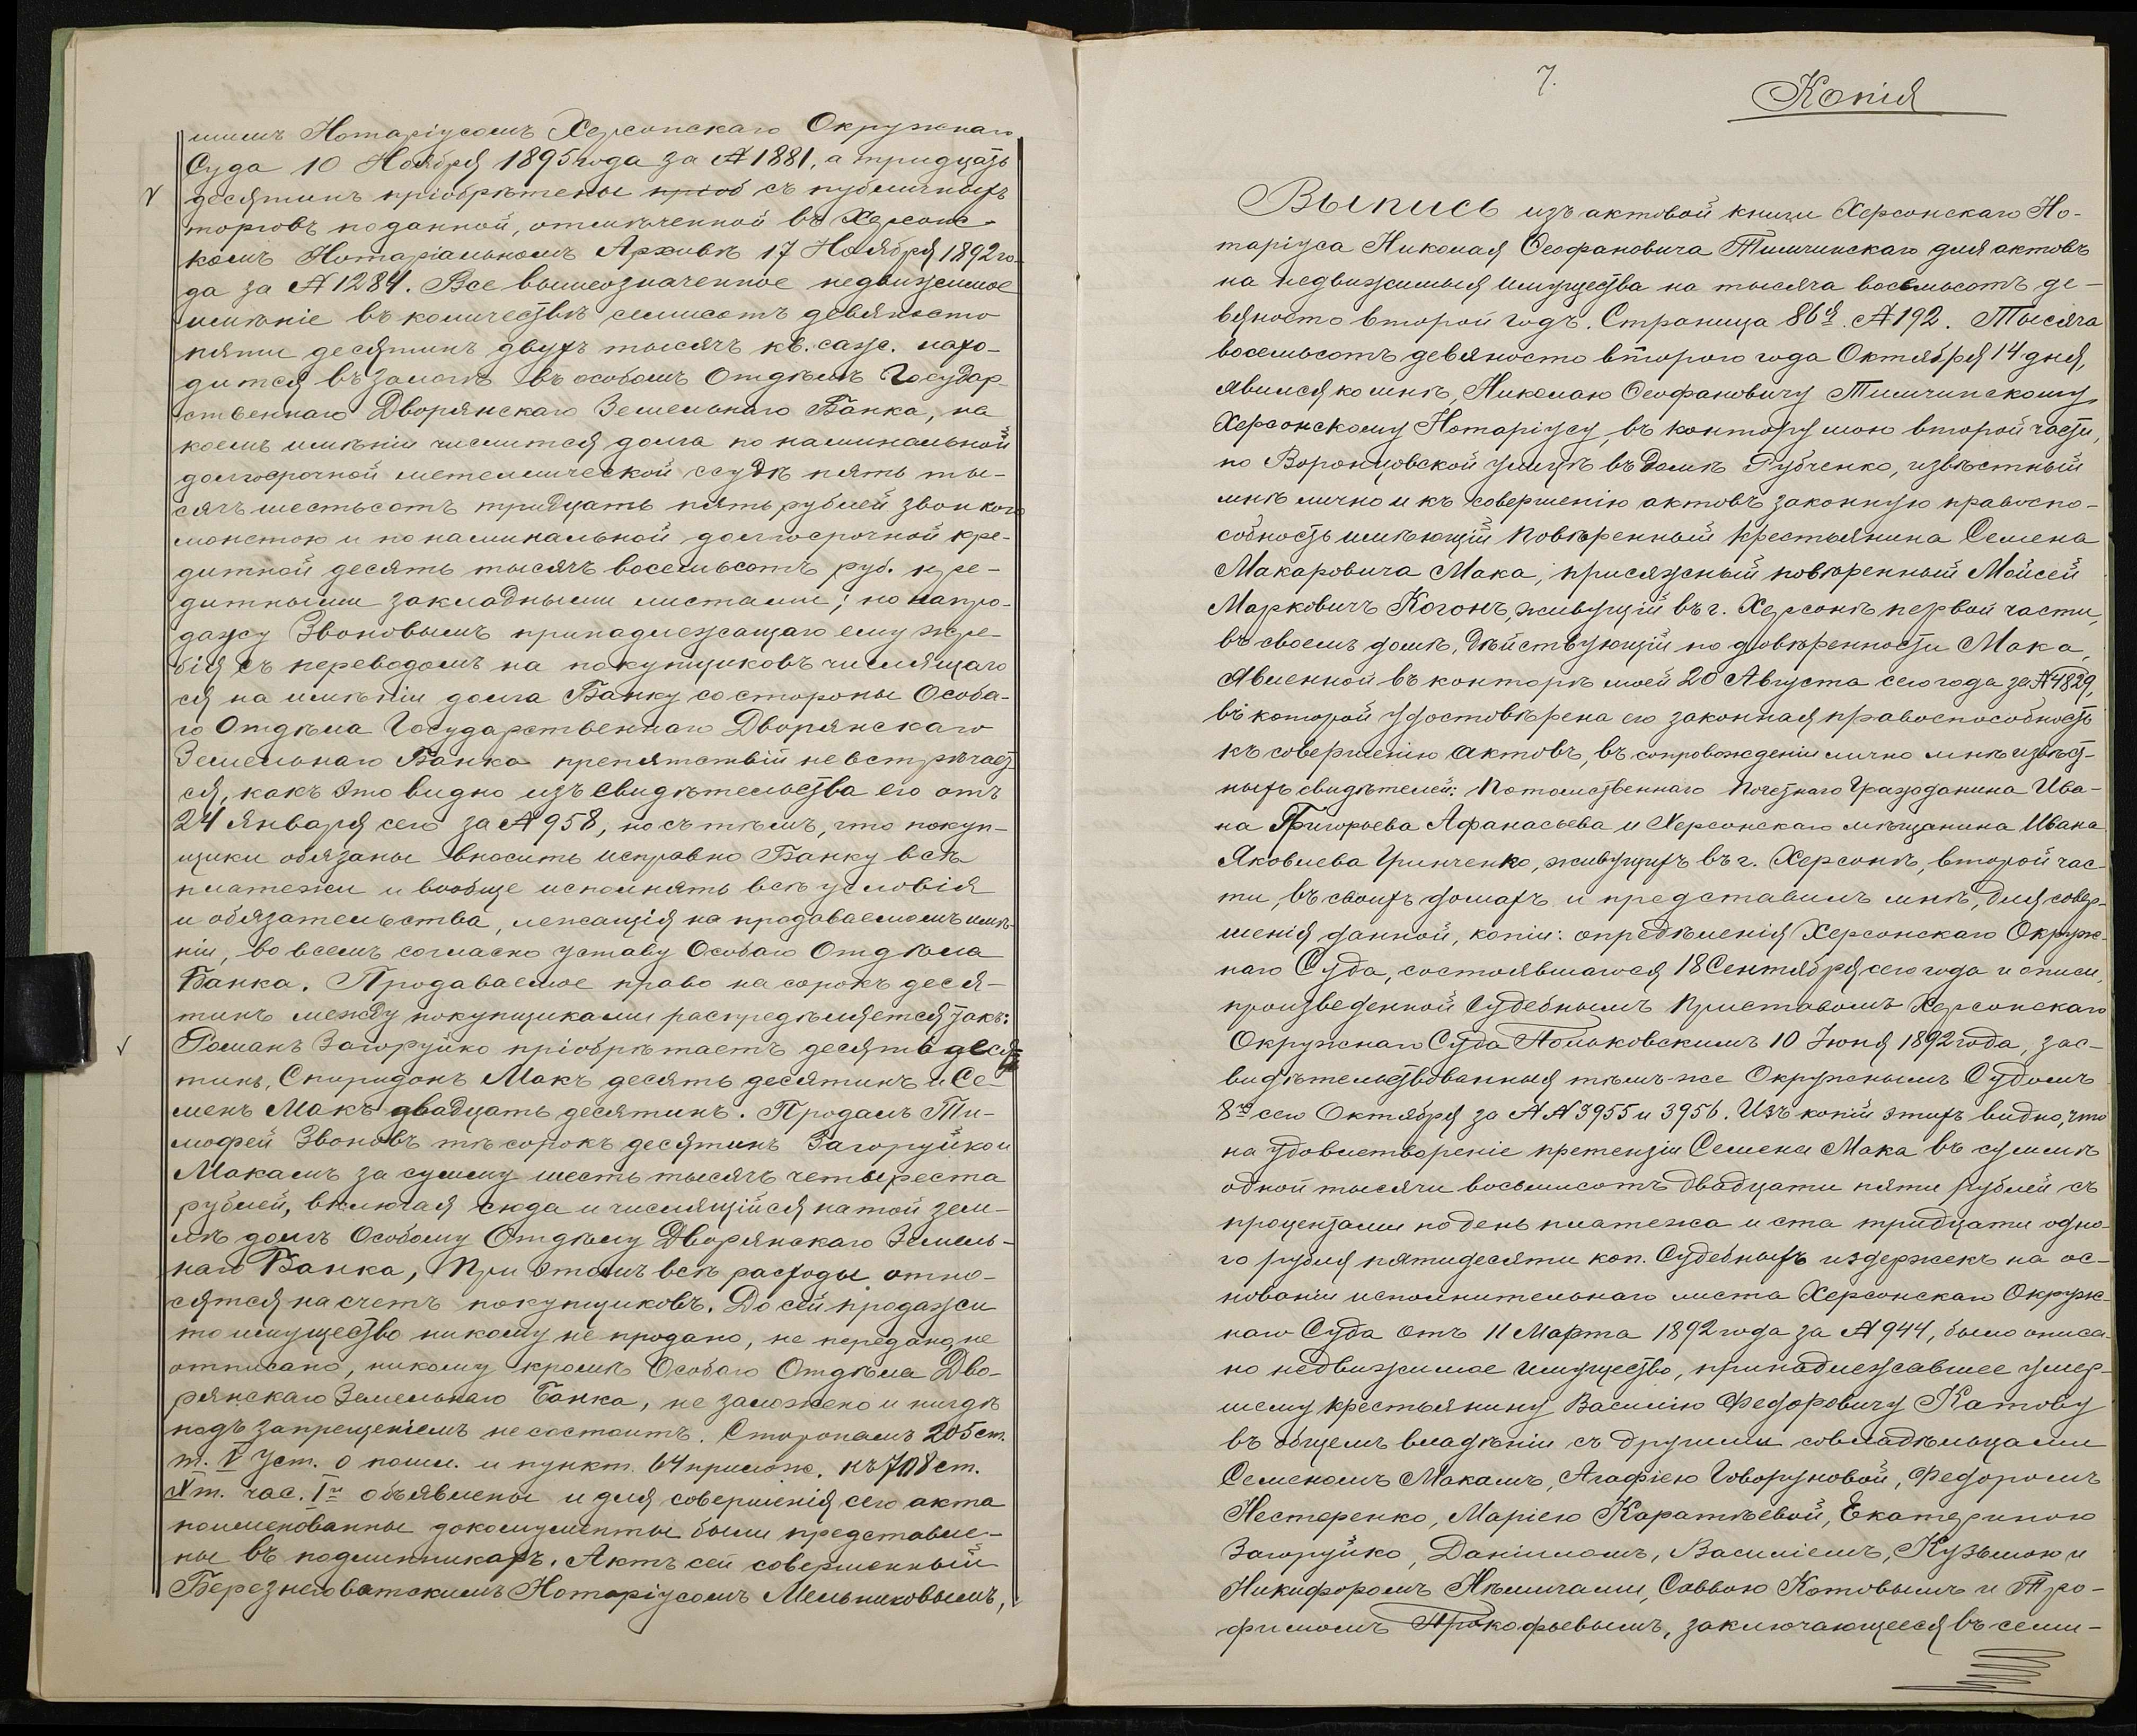 шимъ Нотаріусомъ Херсонскаго Окружнаго
Суда 10 Ноября 1895 года за № 1881, а тридцать
десятинъ пріобрѣтены пріоб съ публичныхъ
торговъ по данной, отмѣченной въ Херсонс-
комъ Нотаріальномъ Архивѣ 17 Ноября 1892 го-
да за № 1284. Все вышеозначенное недвижимое
имѣніе въ количествѣ семисотъ девяносто
пяти десятинъ двухъ тысячъ кв. саж. нахо-
дится въ залогѣ въ особомъ Отдѣлѣ Государ-
ственнаго Дворянскаго Земельнаго Банка, на
коемъ имѣніи числится долга по наминальной
долгосрочной метеллической ссудѣ пять ты-
сячъ шестьсотъ тридцать пять рублей звонкою
монетою и по наминальной долгосрочной кре-
дитной десять тысячъ восемьсотъ руб. кре-
дитными закладными листами; но на про-
дажу Звоновымъ принадлежащаго ему жре-
бія съ переводомъ на покупщиковъ числящаго
ся на имѣніи долга Банку со стороны Особа-
го Отдѣла Государственнаго Дворянскаго
Земельнаго Банка препятствій не встрѣчает-
ся, какъ это видно изъ свидѣтельства его отъ
24 Января сего за № 958, но съ тѣмъ, что покуп-
щики обязаны вносить исправно Банку всѣ
платежи и вообще исполнять всѣ условія
и обязательства, лежащія на продаваемомъ имѣ-
ніи, во всемъ согласно уставу Особаго Отдѣла
Банка. Продаваемое право на сорокъ деся-
тинъ между покупщиками распредѣляется такъ:
Романъ Загоруйко пріобрѣтаетъ десять деся-
тинъ, Спиридонъ Макъ десять десятинъ и Се-
менъ Макъ двадцать десятинъ. Продалъ Ти-
мофей Звоновъ тѣ сорокъ десятинъ Загоруйко и
Макамъ за сумму шесть тысячъ четыреста
рублей, включая сюда и числящійся на той зем-
лѣ долгъ Особому Отдѣлу Дворянскаго Земель-
наго Банка, При этомъ всѣ расходы отно-
сятся на счетъ покупщиковъ. До сей продажи
то имущество никому не продано, не передано, не
отписано, никому кромѣ Особаго Отдѣла Дво-
рянскаго Земельнаго Банка, не заложено и нигдѣ
подъ запрещеніемъ не состоитъ. Сторонамъ 205 ст.
т. V Уст. о пошл. и пункт. 64 прилож. къ 708 ст.
X т. час. I й объявлены и для совершенія сего акта
поименованны докомументы были представле-
ны въ подлинникахъ. Актъ сей совершенный
Березнеговатскимъ Нотаріусомъ Мельниковымъ,
7.
Копія
Выпись изъ актовой книги Херсонскаго Но-
таріуса Николая Ѳеофановича Тимчинскаго для актовъ
на недвижимыя имущества на тысяча восемьсотъ де-
вяносто второй годъ. Страница 86я. № 192. Тысяча
восемьсотъ девяносто второго года Октября 14 дня,
явился ко мнѣ, Николаю Ѳеофановичу Тимчинскому,
Херсонскому Нотаріусу, въ контору мою второй части,
по Воронцовской улицѣ въ домѣ Рубченко, извѣстный
мнѣ лично и къ совершенію актовъ законную правоспо-
собность имѣющій повѣренный крестьянина Семена
Макаровича Мака, присяжный повѣренный Мойсей
Марковичъ Когонъ, живущій въ г. Херсонѣ первой части,
въ своемъ домѣ, дѣйствующій по довѣренности Мака,
явленной въ конторѣ моей 20 Августа сего года за № 4829,
въ которой удостовѣрена его законная правоспособность
къ совершенію актовъ, въ сопровожденіи лично мнѣ извѣст-
ныхъ свидѣтелей: Потомственнаго Почетнаго Гражданина Ива-
на Григорьева Афанасьева и Херсонскаго мѣщанина Ивана
Яковлева Гринченко, живущихъ въ г. Херсонѣ, второй час-
ти, въ своихъ домахъ и представилъ мнѣ, для совер-
шенія данной, копіи: опредѣленія Херсонскаго Окруж-
наго Суда, состоявшагося 18 Сентября сего года и описи,
произведенной Судебнымъ Приставомъ Херсонскаго
Окружнаго Суда Польковскимъ 10 Іюня 1892 года, зас-
видѣтельствованныя тѣмъ-же Окружнымъ Судомъ
8го сего Октября за №№ 3955 и 3956. Изъ копій этихъ видно, что
на удовлетвореніе претензіи Семена Мака въ суммѣ
одной тысячи восьмисотъ двадцати пяти рублей съ
процентами по день платежа и ста тридцати одно-
го рубля пятидесяти коп. Судебныхъ издержекъ на ос-
нованіи исполнительнаго листа Херсонскаго Окруж-
наго Суда отъ 11 Марта 1892 года за № 944, было описа-
но недвижимое имущество, принадлежавшее умер-
шему крестьянину Василію Федоровичу Катову
въ общемъ владѣніи съ другими совладѣльцами
Семеномъ Макамъ, Агафіею Говоруновой, Федоромъ
Нестеренко, Маріею Каратѣевой, Екатериною
Загоруйко, Даніиломъ, Василіемъ, Кузьмою и
Никифоромъ Нѣмичами, Саввою Котовымъ и Тро-
фимомъ Прокофьевымъ, заключающееся въ семи-